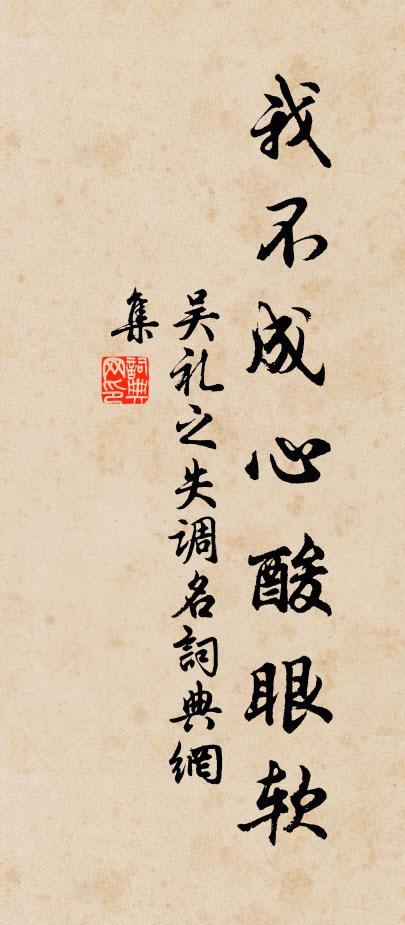 我不成心酸眼软
吴礼之失调名詞典網
集
詞典
网印